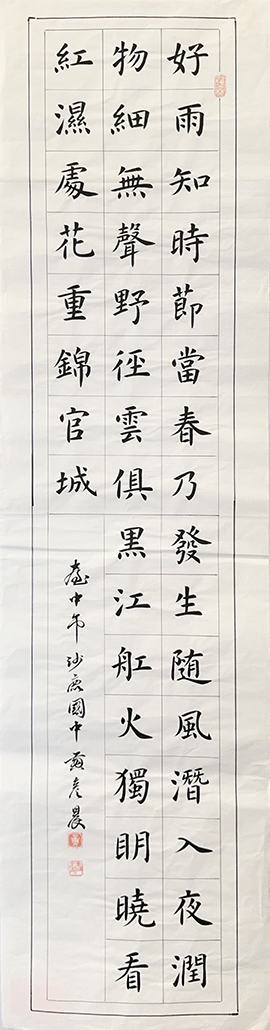 好雨知時節當春乃發生随風潛入夜潤
物細無聲野徑雲俱黑江舡火獨明曉看
紅濕處花重錦官城
臺中市沙鹿國中黃彥晨